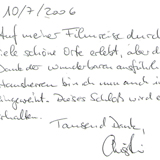 10/7/2006
Auf meiner Filmreise durch
viele schöne Orte erlebt, aber d
Dank der wunderbaren ausführli
Hausherren bin ich nun auch i
eingeweiht. Dieses Schloß wird e
erhalten.
Tausend Dank,